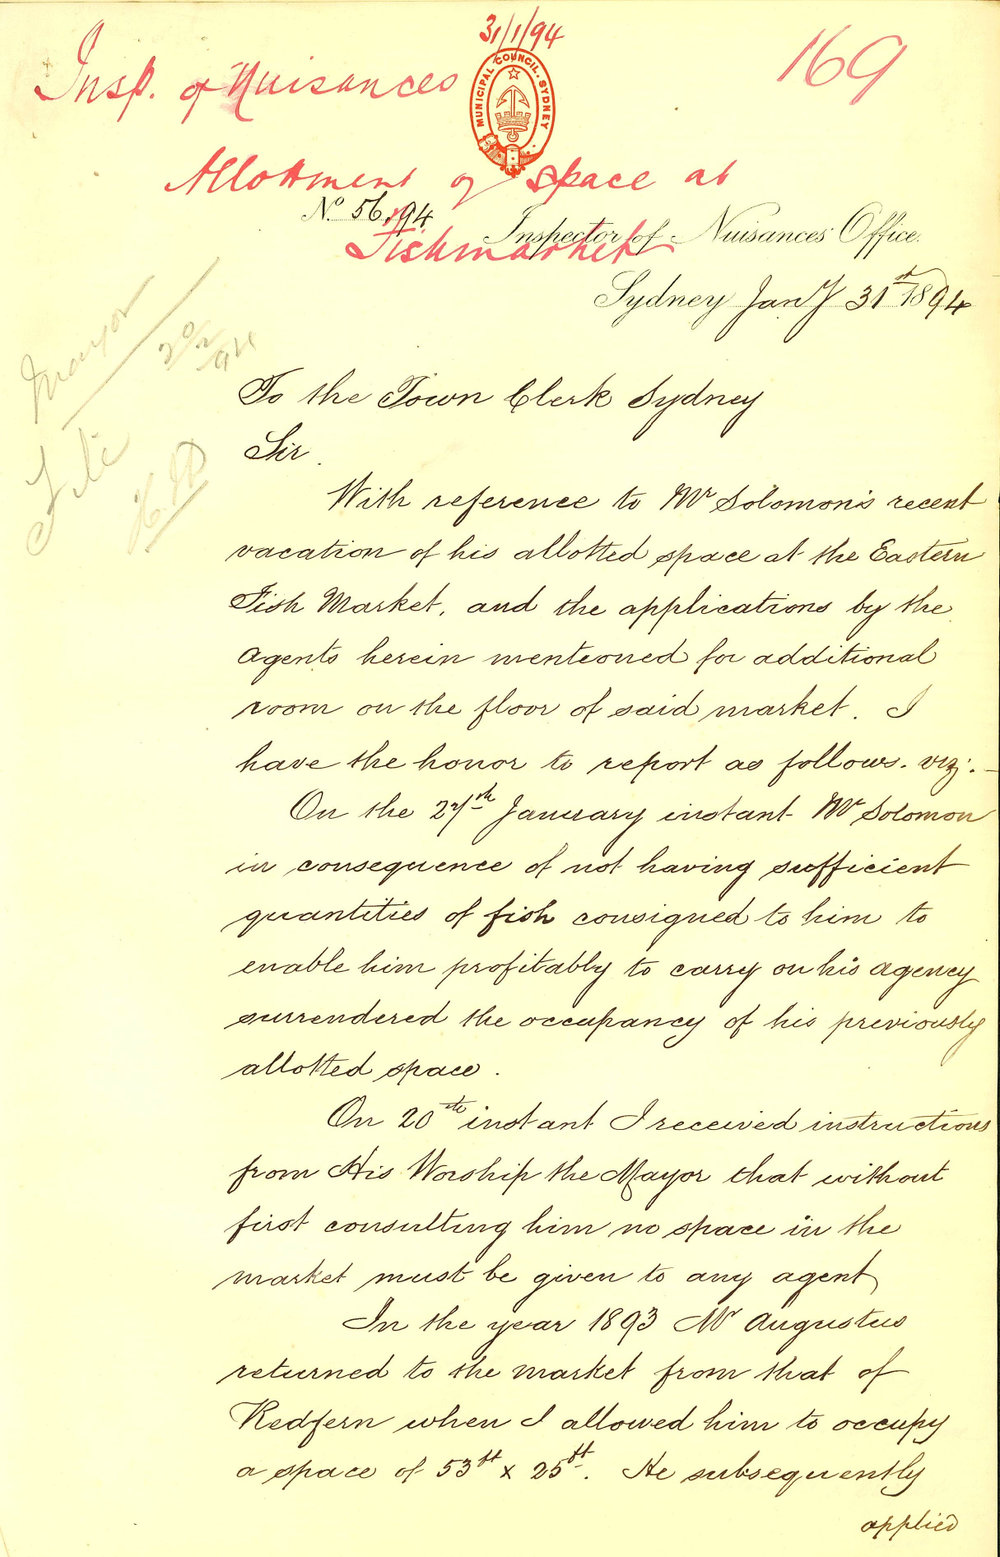 31/1/94
169
Insp. of Nuisances
MUNICIPAL COUNCIL. SYDNEY
Allotment of space at
Fishmarket
No. 56.94
Inspector of Nuisances Office.
Sydney Jany 31st 1894
Mayor
20/2/94
File
To the Town Clerk Sydney
Sir.
With reference to Mr Solomon's recent
vacation of his allotted space at the Eastern
Fish Market, and the applications by the
agents herein mentioned for additional
room on the floor of said market. I
have the honor to report as follows. viz:-
On the 27th January instant Mr Solomon
in consequence of not having sufficient
quantities of fish consigned to him to
enable him profitably to carry on his agency
surrendered the occupancy of his previously
allotted space.
On 20th instant I received instructions
from His Worship the Mayor that without
first consulting him no space in the
market must be given to any agent
In the year 1893 Mr Augustus
returned to the market from that of
Redfern when I allowed him to occupy
a space of 53ft x 25ft. He subsequently
applied